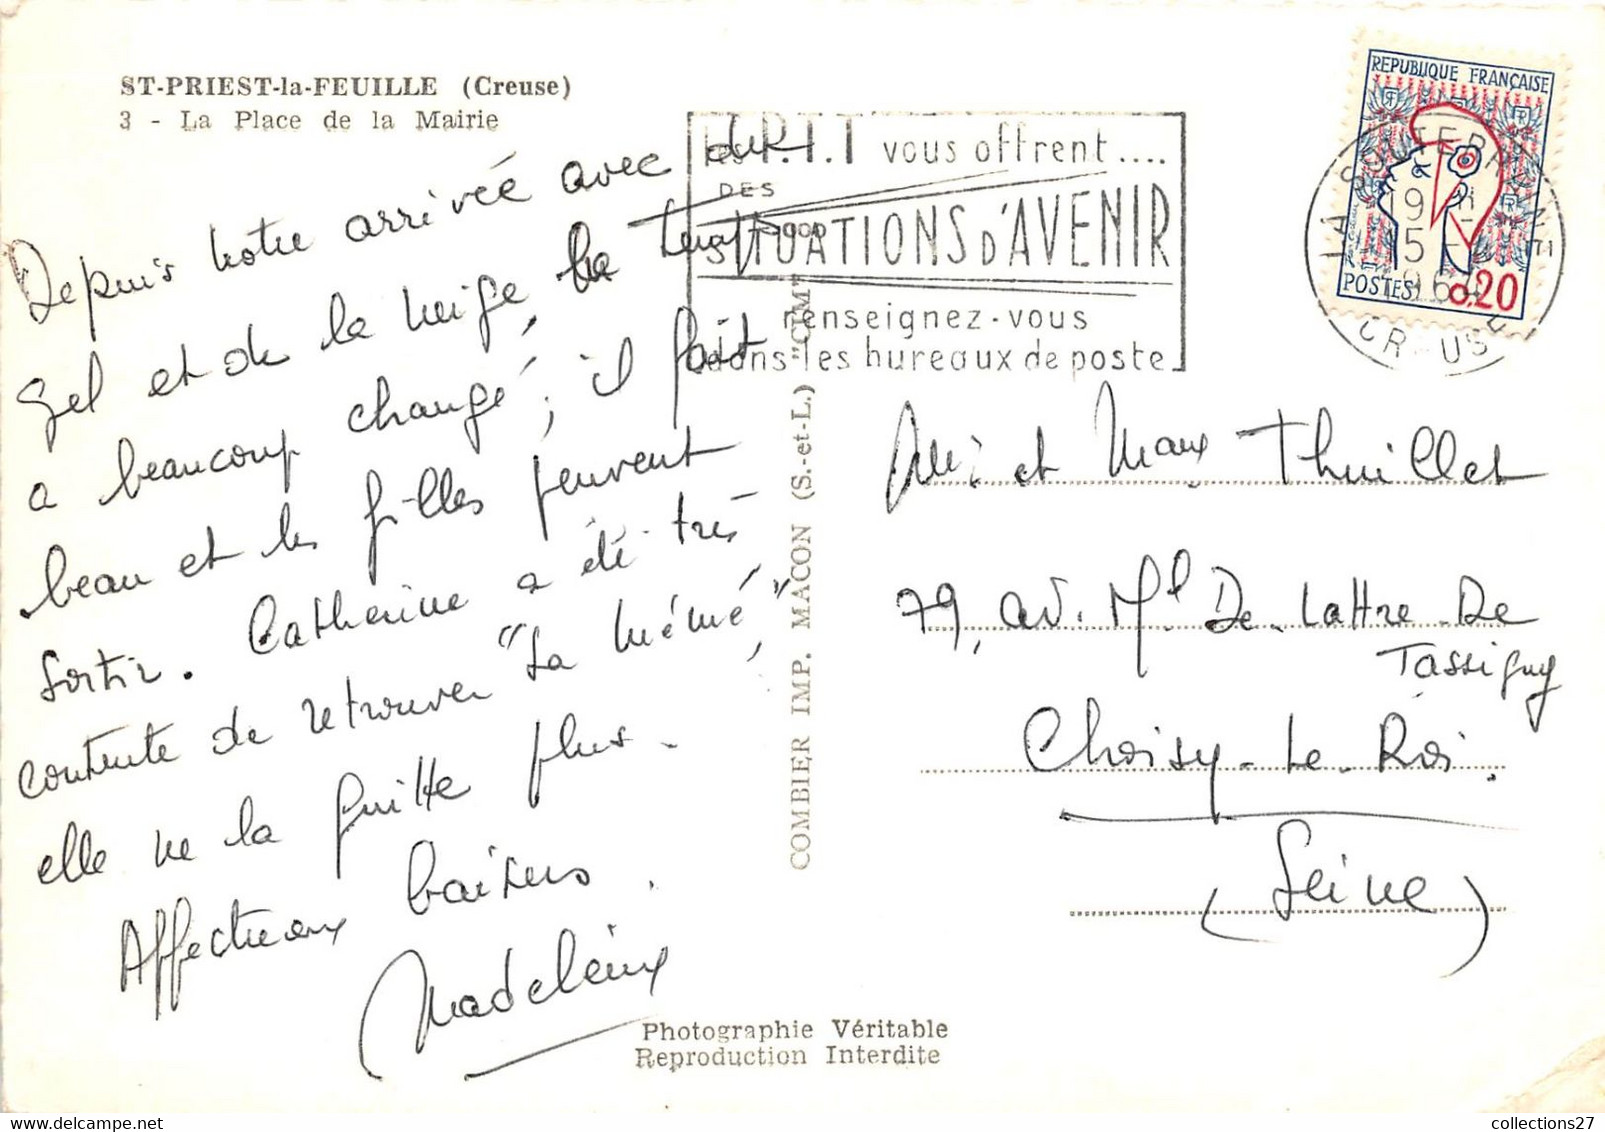 ST-PRIEST-la-FEUILLE (Creuse)
3 - La Place de la Mairie
Depuis notre arrivée avec du
gel et de la neige, le temps
a beaucoup changé, il fait
beau et les filles peuvent
sortir. Catherine a été très
contente de retrouver "la mémé,"
elle ne la quitte plus.
Affectueux baisers.
Madeleine
COMBIER IMP. MACON (S.-et-L.) "CIM"
Photographie Véritable
Reproduction Interdite
P.T.T vous offrent....
DES
SITUATIONS D'AVENIR
renseignez-vous
dans les bureaux de poste
REPUBLIQUE FRANÇAISE
POSTES 0,20
LA SOUTERRAINE
19
5 - 4
1964
CREUSE
et Marx Thuillet
79, av. Ml De Lattre De
Tassigny
Choisy-Le-Roi.
(Seine)
collections27